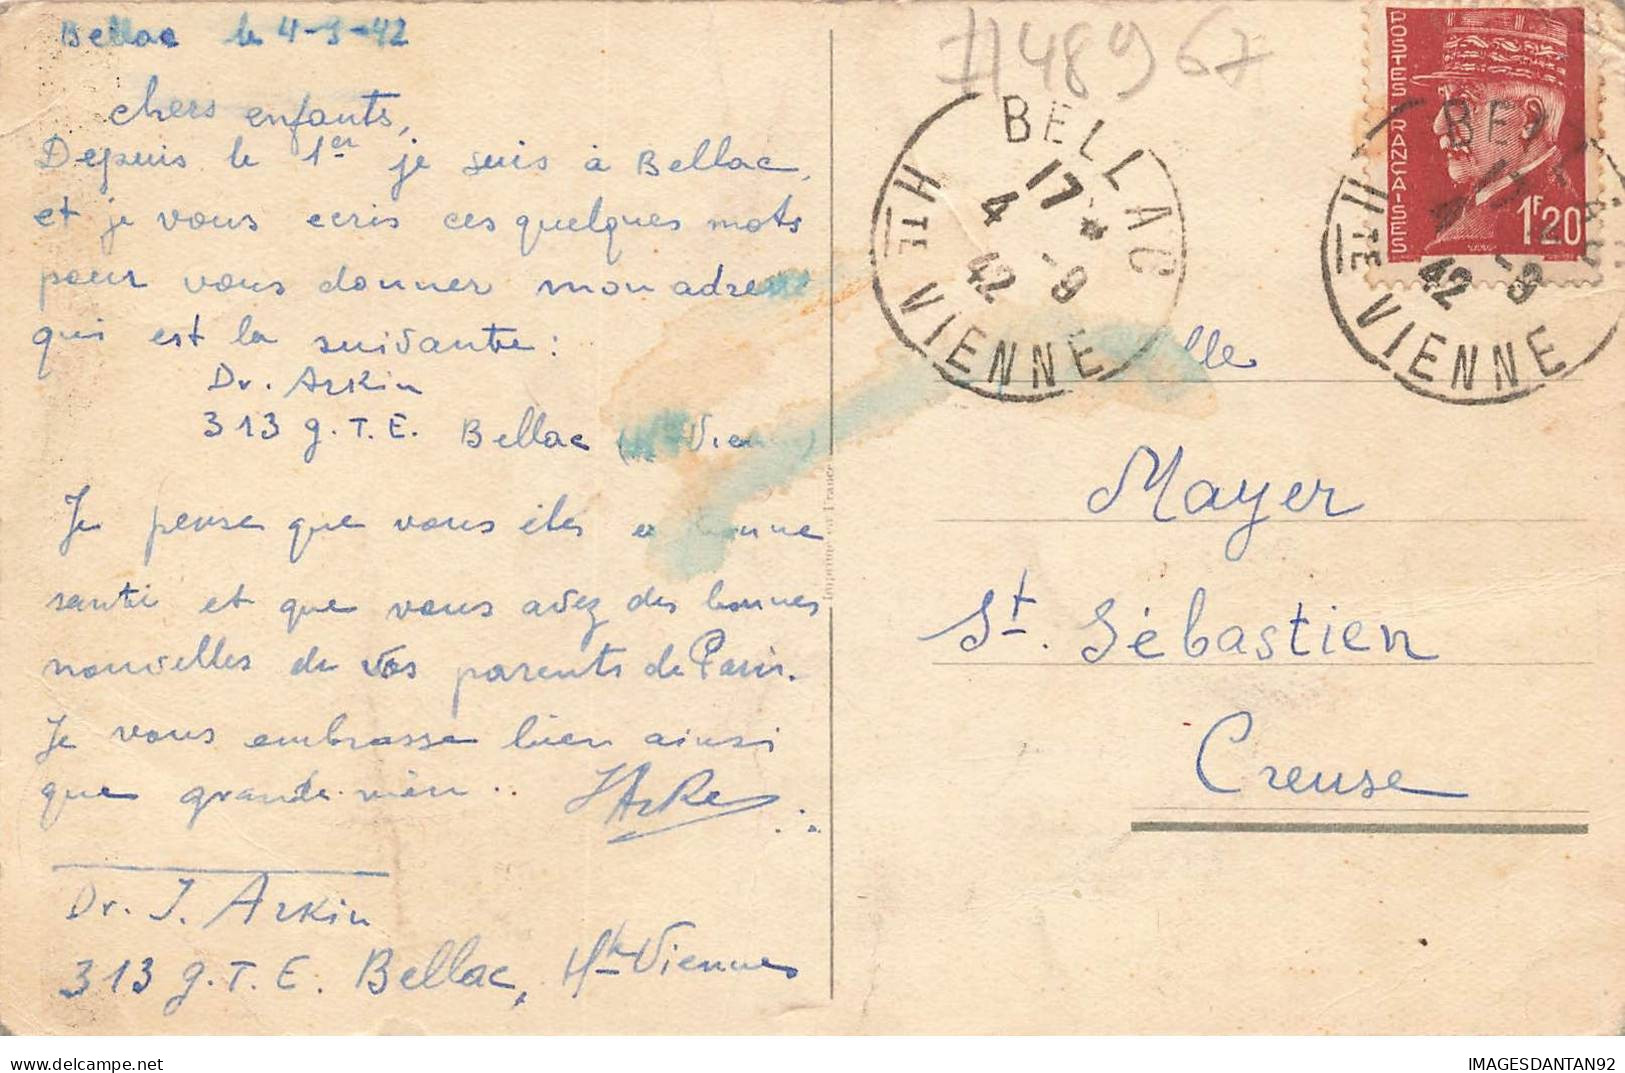 Bellac le 4-9-42
chers enfants,
Depuis le 1er je suis à Bellac,
et je vous ecris ces quelques mots
pour vous donner mon adresse
qui est la suivante:
Dr. Arkin
313 g.T.E. Bellac (Hte Vienne)
Je pense que vous êtes en bonne
santé et que vous avez des bonnes
nouvelles de vos parents de Paris.
Je vous embrasse bien ainsi
que grande
Dr. J. Arkin
313 g.T.E. Bellac, Hte Viennes
71489 67
BELLAC
17 *
4 -9
42
HTE VIENNE
POSTES FRANÇAISES
1F20
BELLAC
4 -9
42
HTE VIENNE
lle
Mayer
St. Sébastien
Creuse
Imprimé en France
IMAGESDANTAN92